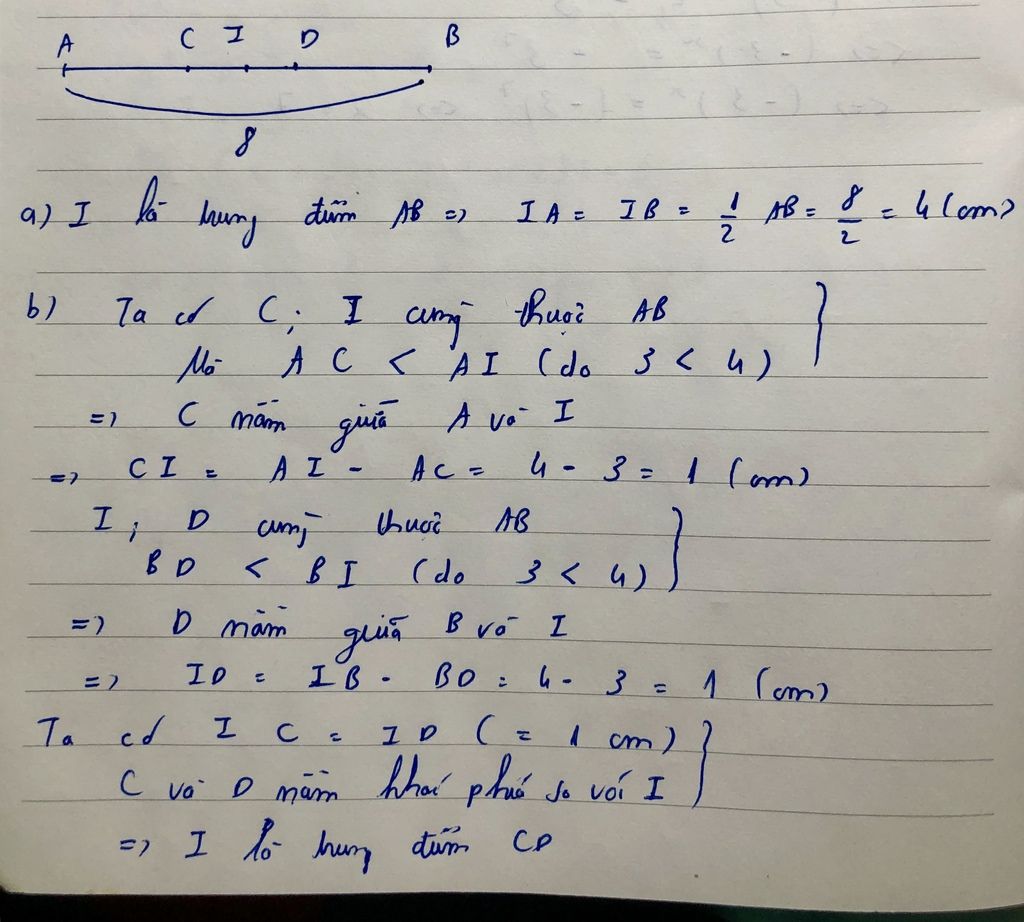 A C I D B
8
a) I là trung điểm AB => IA = IB = 1/2 AB = 8/2 = 4 (cm)
b) Ta có C; I cùng thuộc AB
Mà AC < AI (do 3 < 4)
=> C nằm giữa A và I
=> CI = AI - AC = 4 - 3 = 1 (cm)
I; D cùng thuộc AB
BD < BI (do 3 < 4)
=> D nằm giữa B và I
=> ID = IB - BD = 4 - 3 = 1 (cm)
Ta có IC = ID (= 1 cm)
C và D nằm khác phía so với I
=> I là trung điểm CD